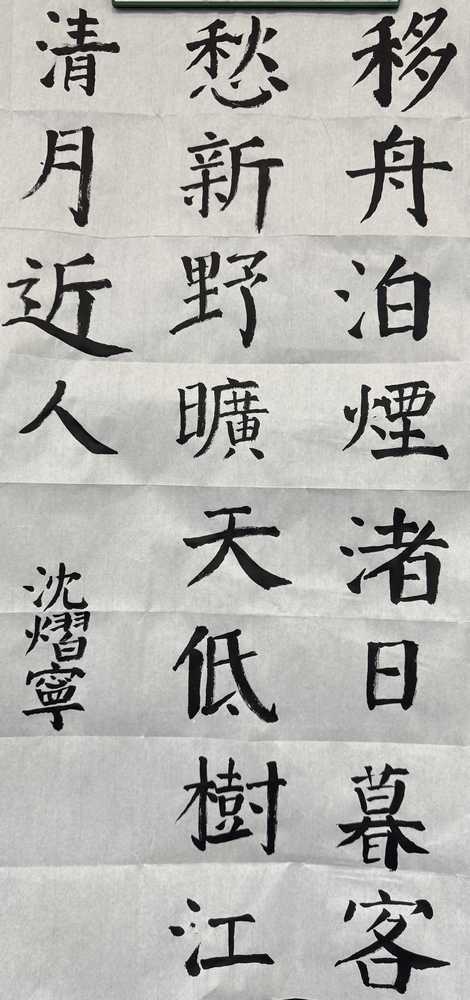 移舟泊煙渚日暮客
愁新野曠天低樹江
清月近人
沈熠寧